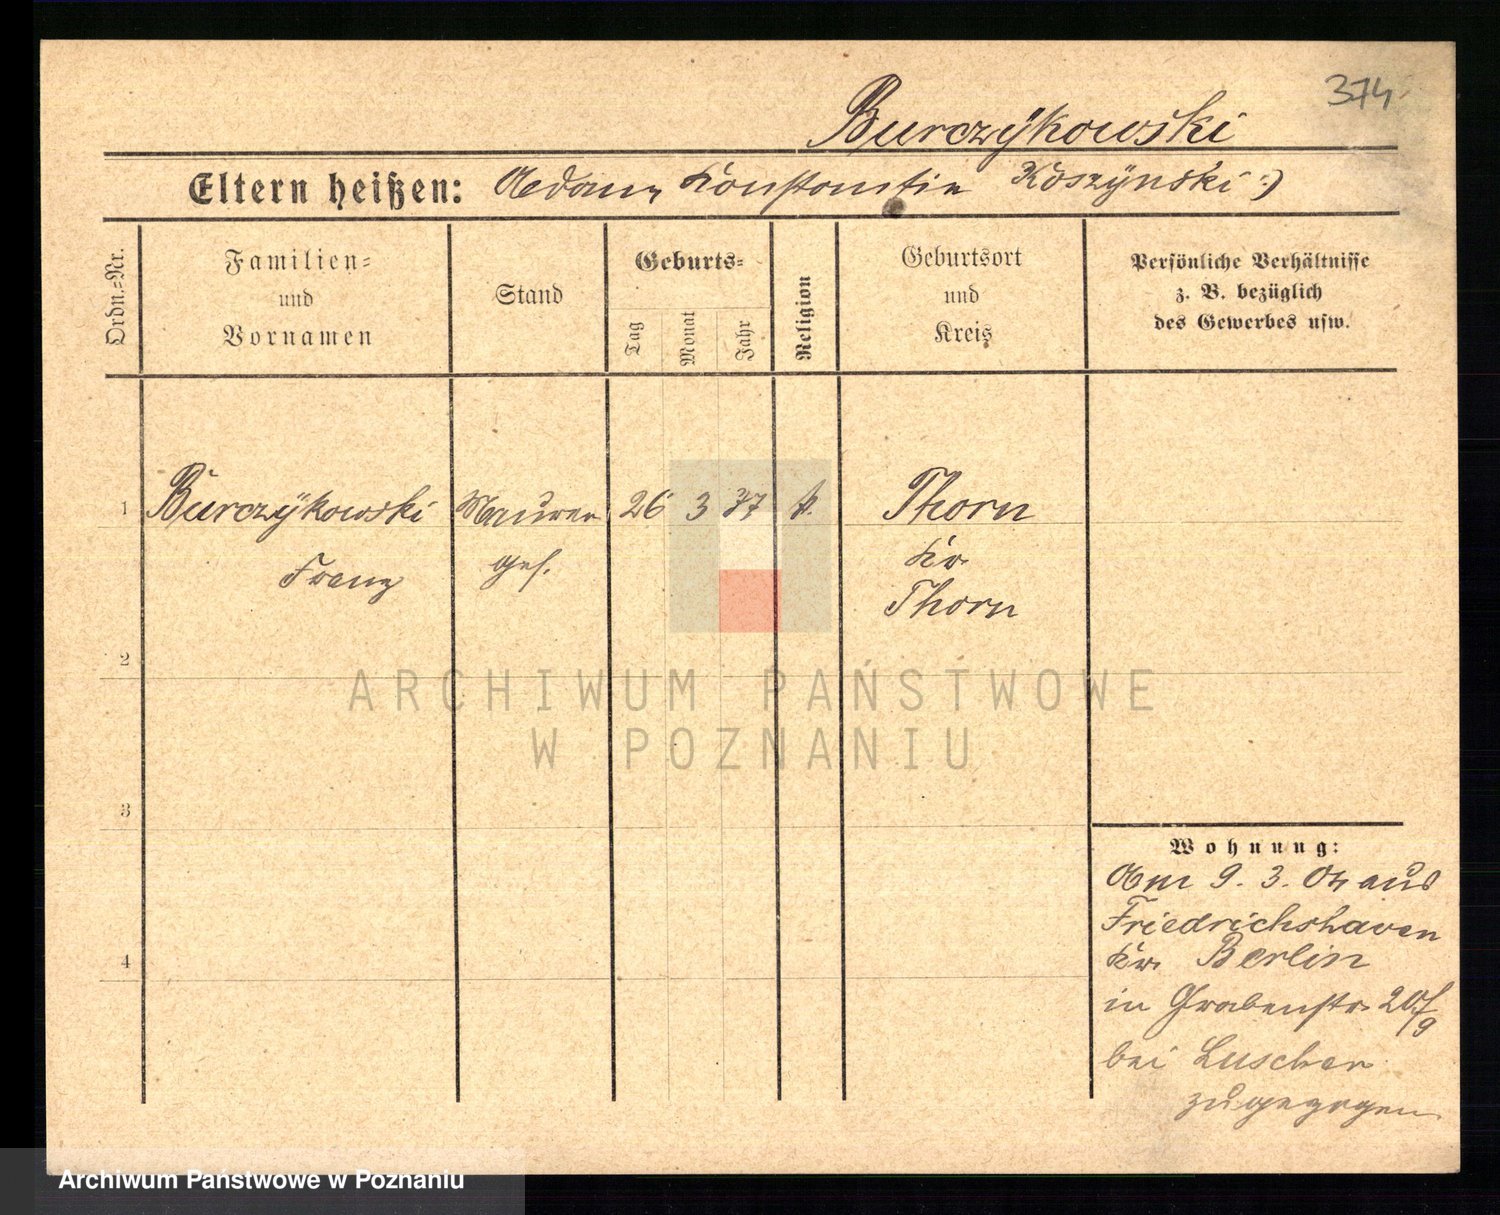 374
Burczÿkowski
Eltern heißen: Adam Konstantin Koszÿnski :)
Ordn.-Nr.
Familien-
und
Vornamen
Stand
Geburts-
Tag
Monat
Jahr
Religion
Geburtsort
und
Kreis
Persönliche Verhältnisse
z. B. bezüglich
des Gewerbes usw.
1 Burczÿkowski Maurer 26 3 77 k. Thorn
Franz ges. Kr.
Thorn
2
ARCHIWUM PAŃSTWOWE
W POZNANIU
3
Wohnung:
Am 9. 3. 04 aus
Friedrichshaven
4
Kr. Berlin
in Grabenstr. 20/9
bei Luscher
zugezogen
Archiwum Państwowe w Poznaniu